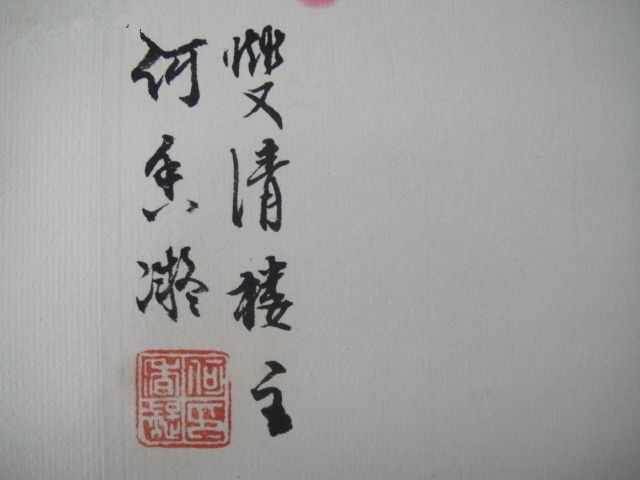 雙清楼主
何香凝
何氏香凝